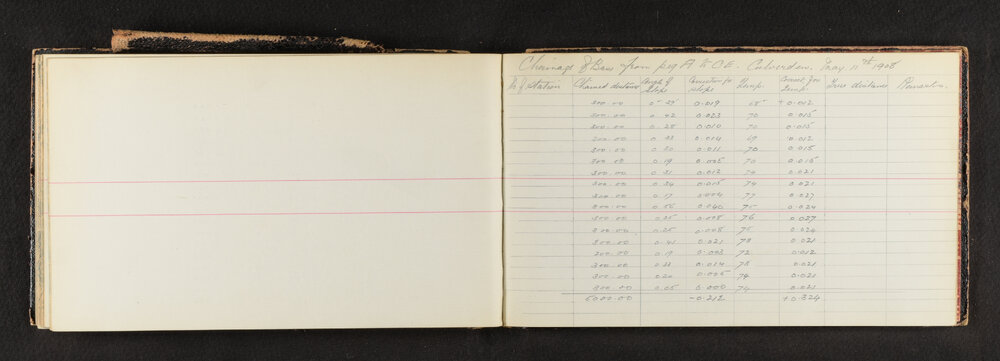 Chainage of Base from peg A to C.E. Culverden. May 11th 1908
No of Station Chained distance Angle of Slope Correction for slope Temp. Correct. for Temp. True distance Remarks.
300.00 0.39 0.019 68 +0.012
300.00 0.42 0.023 70 0.015
300.00 0.28 0.010 70 0.015
300.00 0.33 0.014 69 0.012
300.00 0.30 0.011 70 0.015
300.00 0.19 0.005 70 0.015
300.00 0.31 0.012 74 0.021
300.00 0.34 0.015 74 0.021
300.00 0.17 0.004 77 0.027
300.00 0.56 0.040 75 0.024
300.00 0.25 0.008 76 0.027
300.00 0.25 0.008 75 0.024
300.00 0.41 0.021 73 0.021
200.00 0.19 0.003 72 0.012
300.00 0.33 0.014 73 0.021
300.00 0.20 0.005 74 0.021
300.00 0.05 0.000 74 0.021
5000.00 -0.212 +0.324